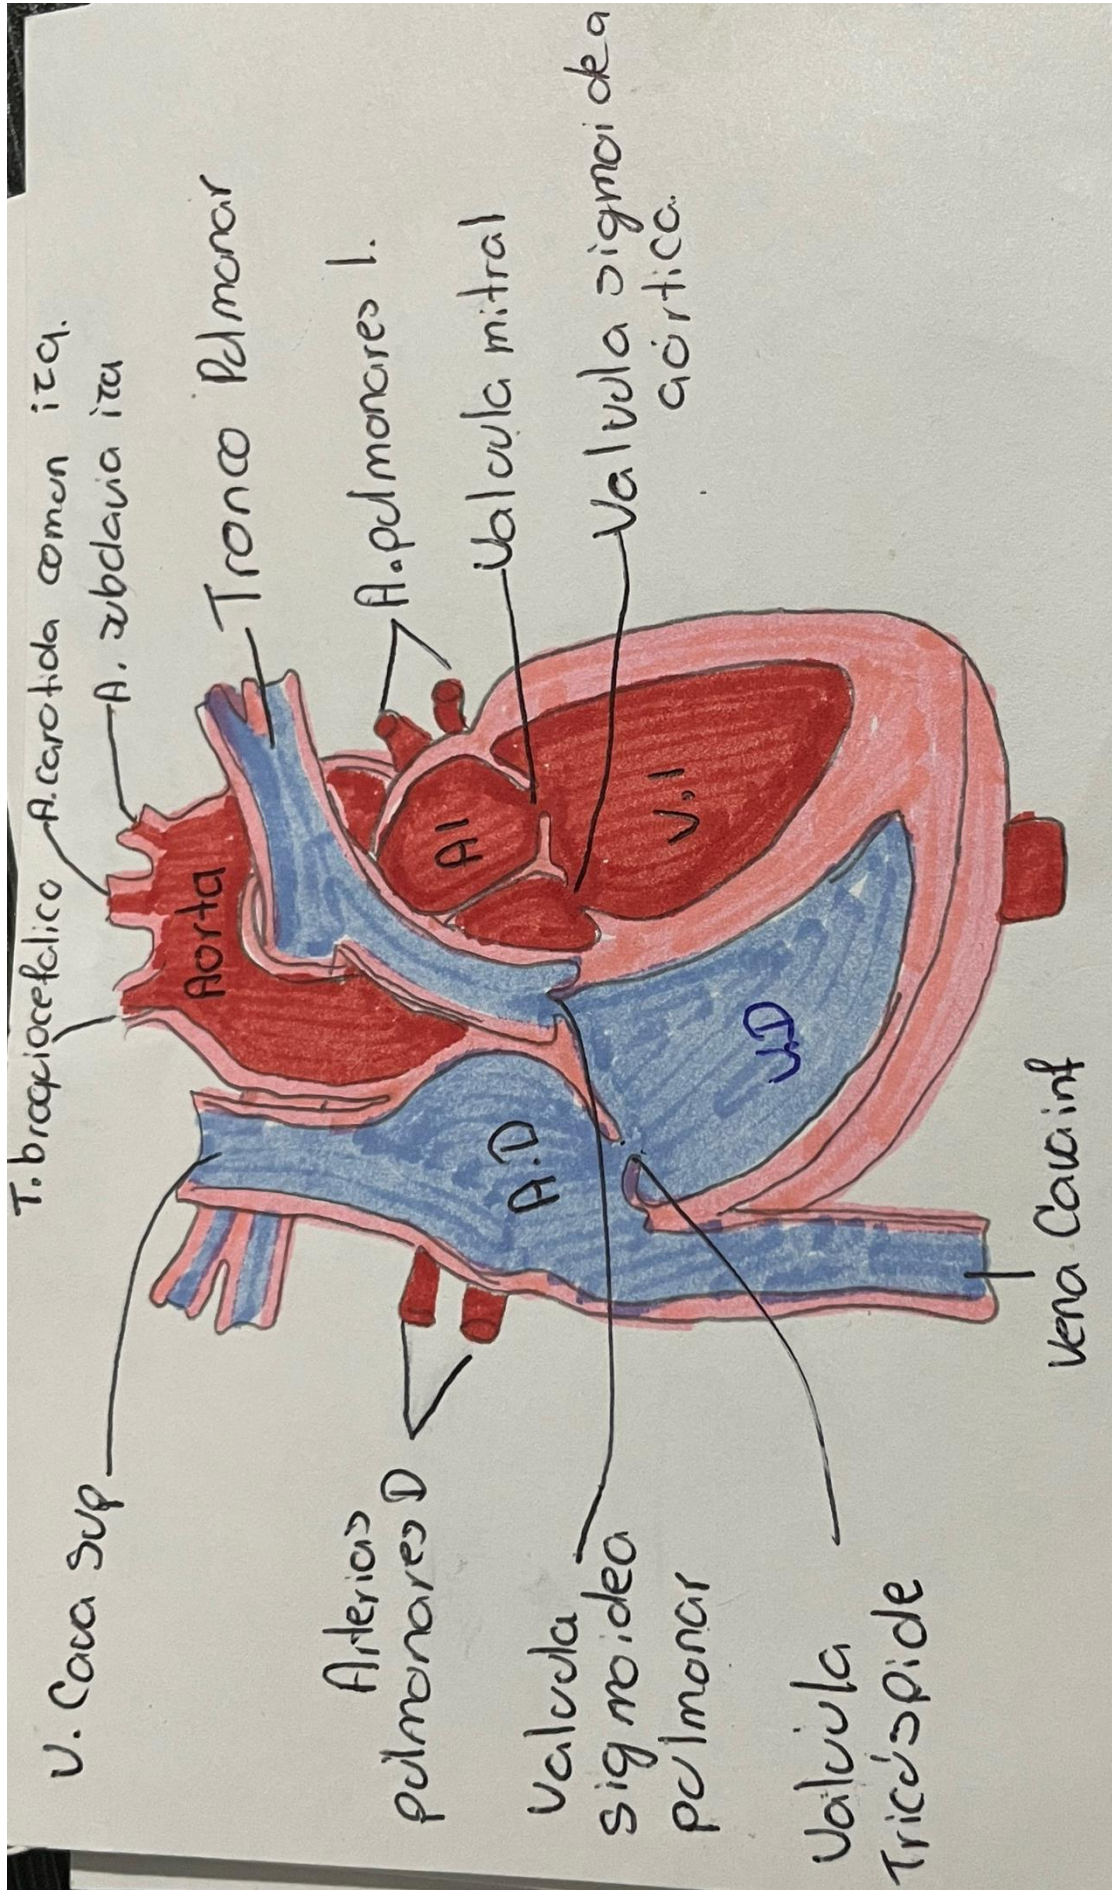 T. braquiocefalico
A. carotida comun izq.
A. subclavia izq
Tronco Pulmonar
A. pulmonares I.
Valvula mitral
Valvula sigmoidea
aórtica
V. Cava Sup
Arterias
pulmonares D
Valvula
sigmoidea
pulmonar
Valvula
Tricúspide
Vena Cava inf
Aorta
AI
V.I
A.D
V.D